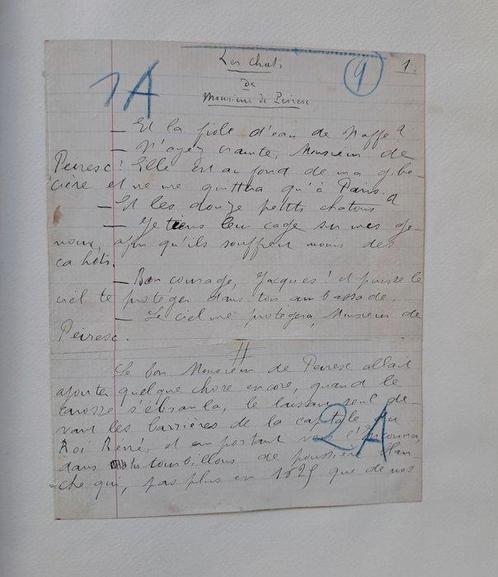 1A
9
1.
Les Chats
de
Monsieur de Peiresc
— Et la fiole d'eau de Naffe ?
— N'ayez crainte, Monsieur de
Peiresc ! Elle est au fond de ma gibe-
cière et ne me quittera qu'à Paris.
— Et les douze petits chatons ?
— Je tiens leur cage sur mes ge-
noux, afin qu'ils souffrent moins des
cahots.
— Bon courage, Jacques ! et puisse le
ciel te protéger dans ton ambassade.
— Le ciel me protégera, Monsieur de
Peiresc.
Le bon Monsieur de Peiresc allait
ajouter quelque chose encore, quand le
carosse s'ébranla, le laissant seul de-
vant les barrières de la capitale du
Roi René, et emportant
2A
dans les tourbillons de poussière blan-
che qui, pas plus en 1625 que de nos